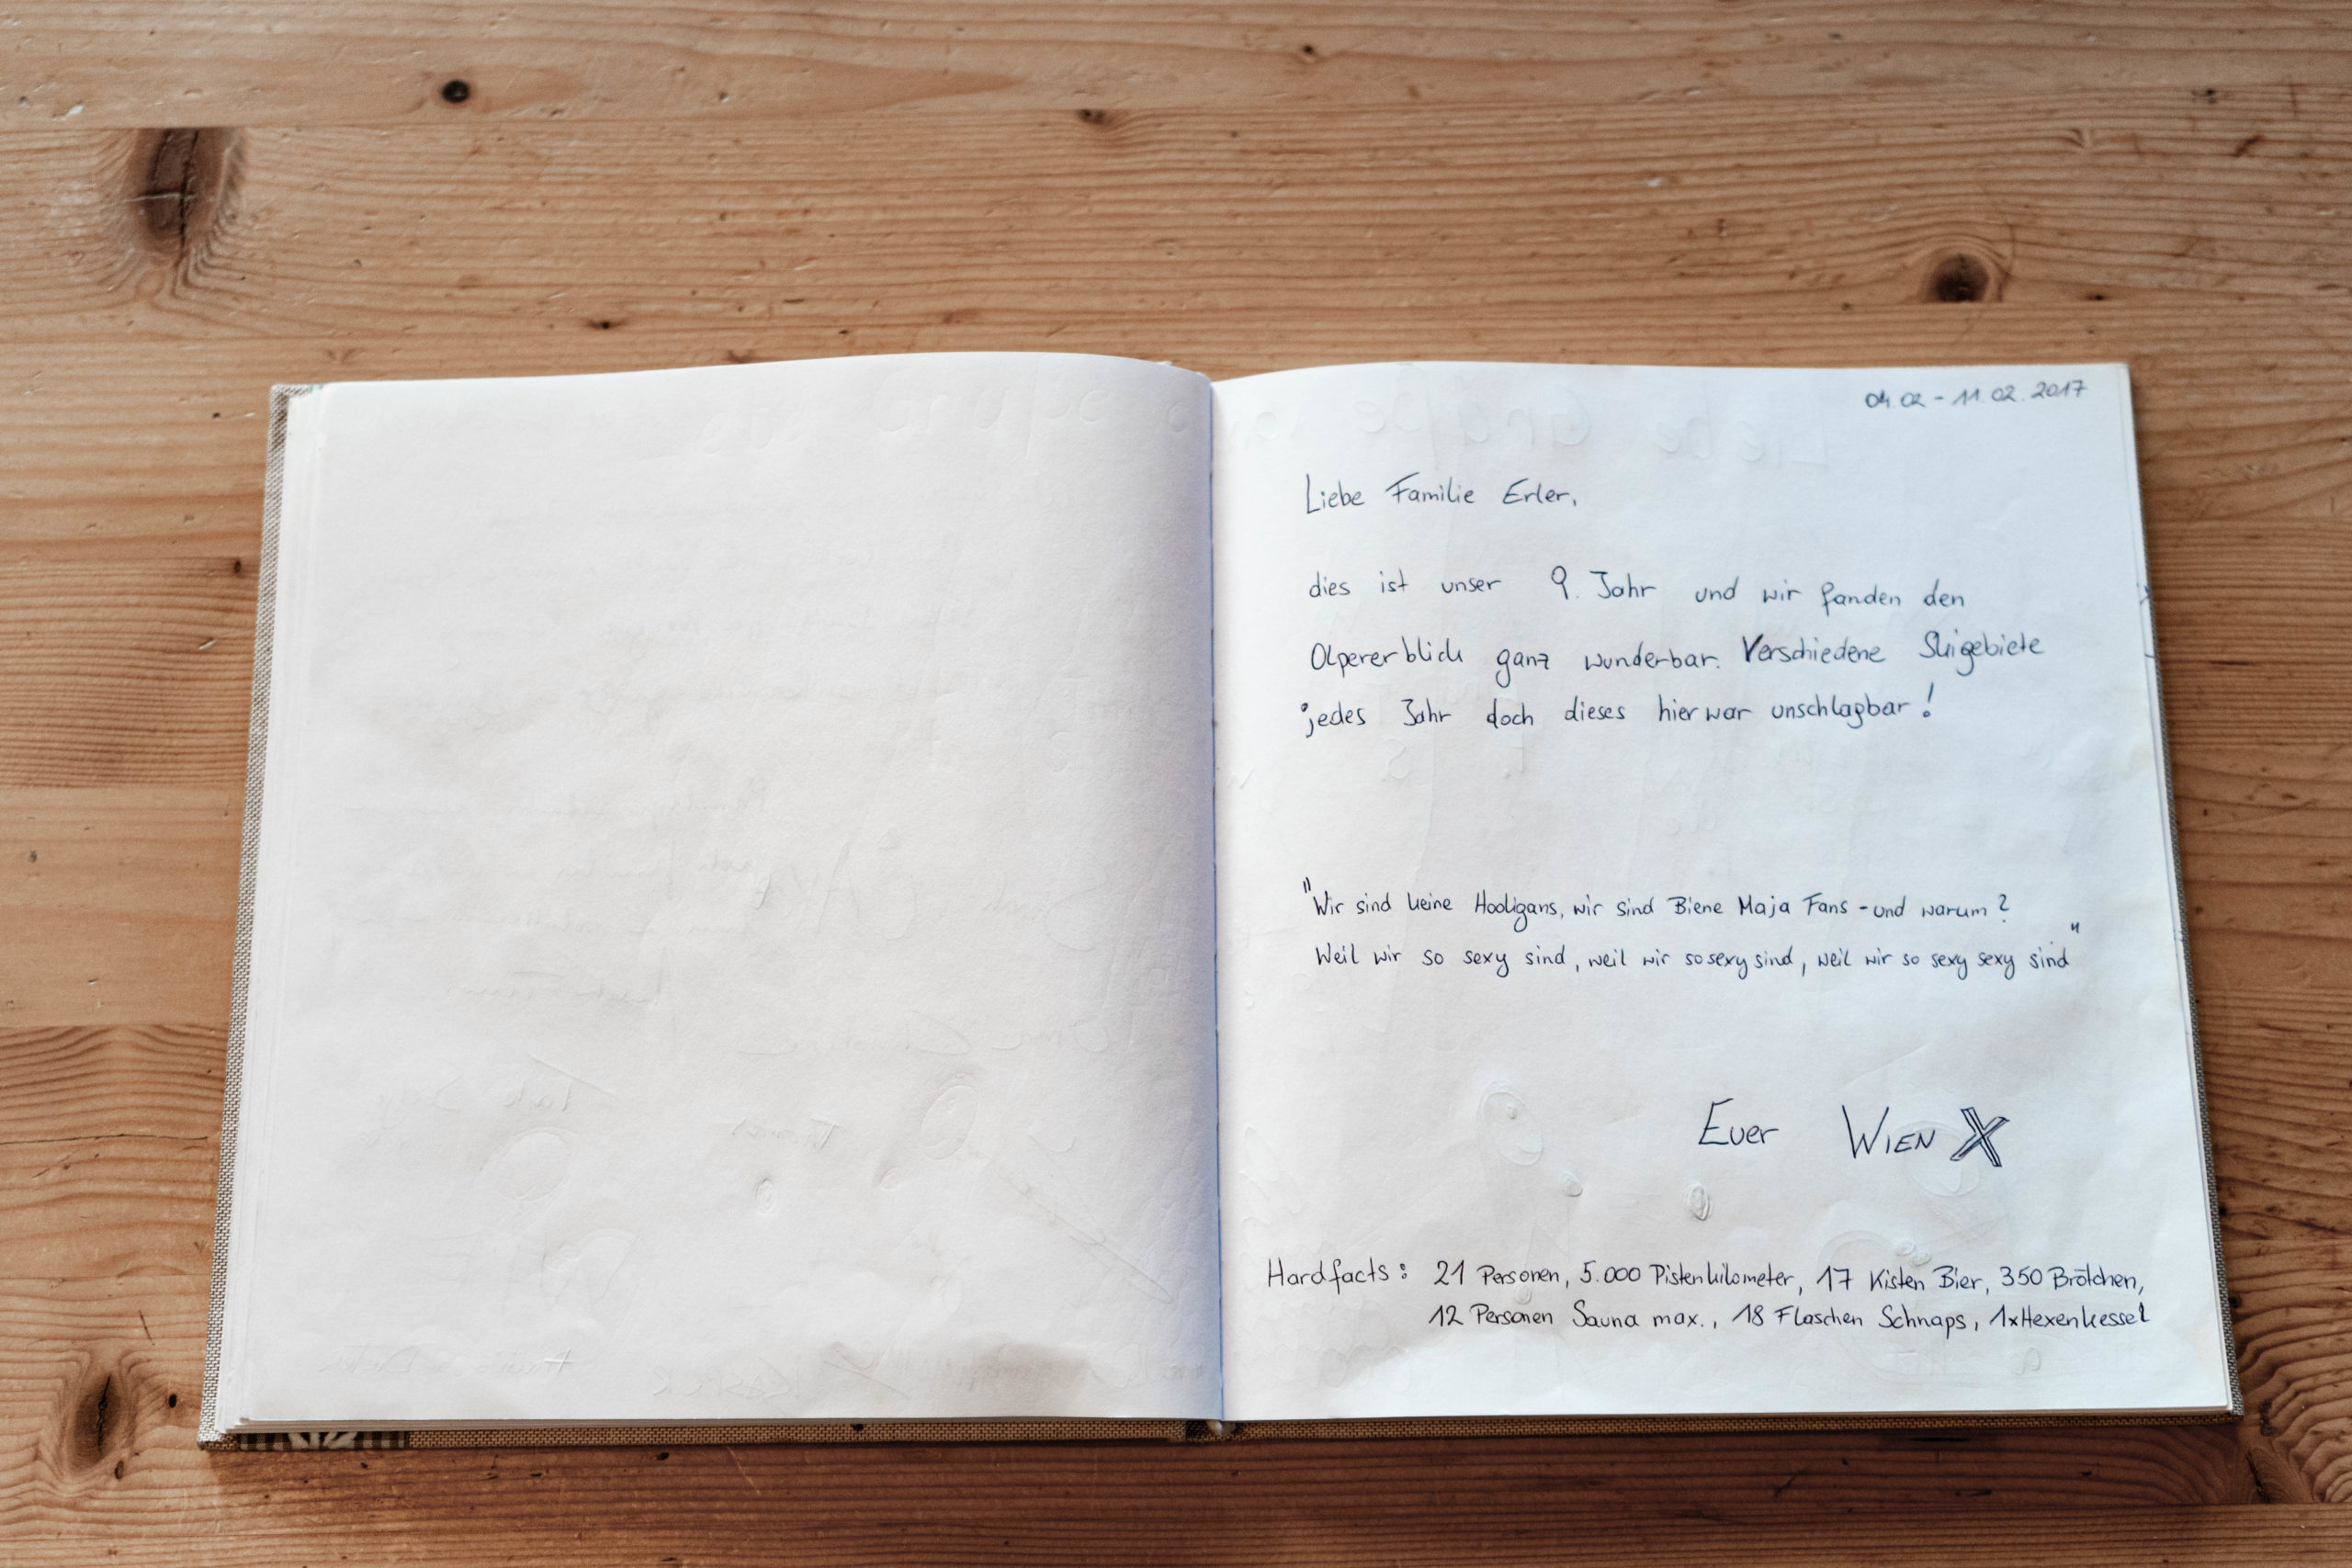 04.02 - 11.02.2017
Liebe Familie Erler,
dies ist unser 9. Jahr und wir fanden den
Olpererblick ganz wunderbar. Verschiedene Skigebiete
jedes Jahr doch dieses hier war unschlagbar!
"Wir sind keine Hooligans, wir sind Biene Maja Fans - und warum?
Weil wir so sexy sind, weil wir so sexy sind, weil wir so sexy sexy sind"
Euer WIEN X
Hardfacts: 21 Personen, 5.000 Pistenkilometer, 17 Kisten Bier, 350 Brötchen,
12 Personen Sauna max., 18 Flaschen Schnaps, 1xHexenkessel